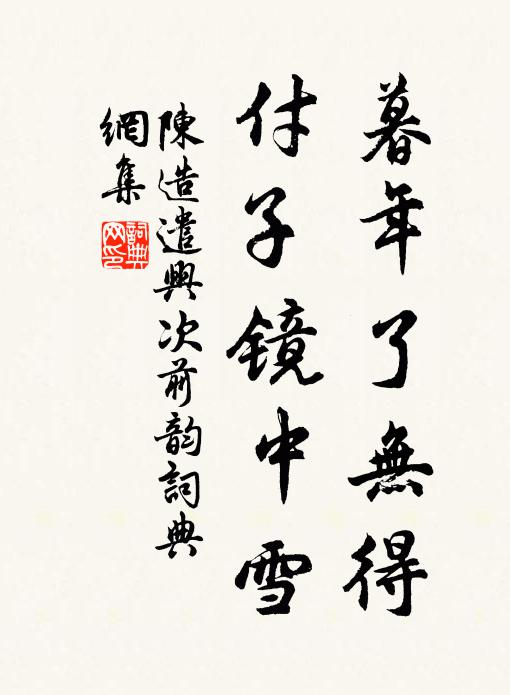 暮年了無得
付子镜中雪
陳造遣興次前韵詞典
網集
詞典网印